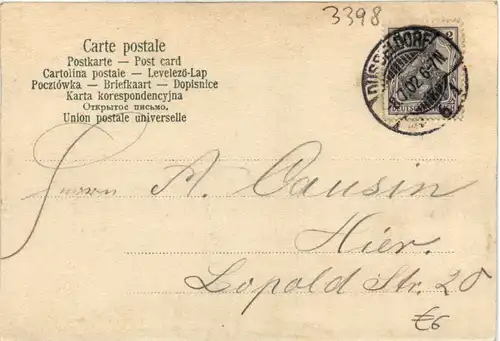 3398
Carte postale
Postkarte — Post card
Cartolina postale — Levelező-Lap
Pocztówka — Briefkaart — Dopisnice
Karta korespondencyjna
Открытое письмо.
Union postale universelle
DÜSSELDORF
02 6-7N
Herrn A. Causin
Hier.
Lopold Str. 20
€6